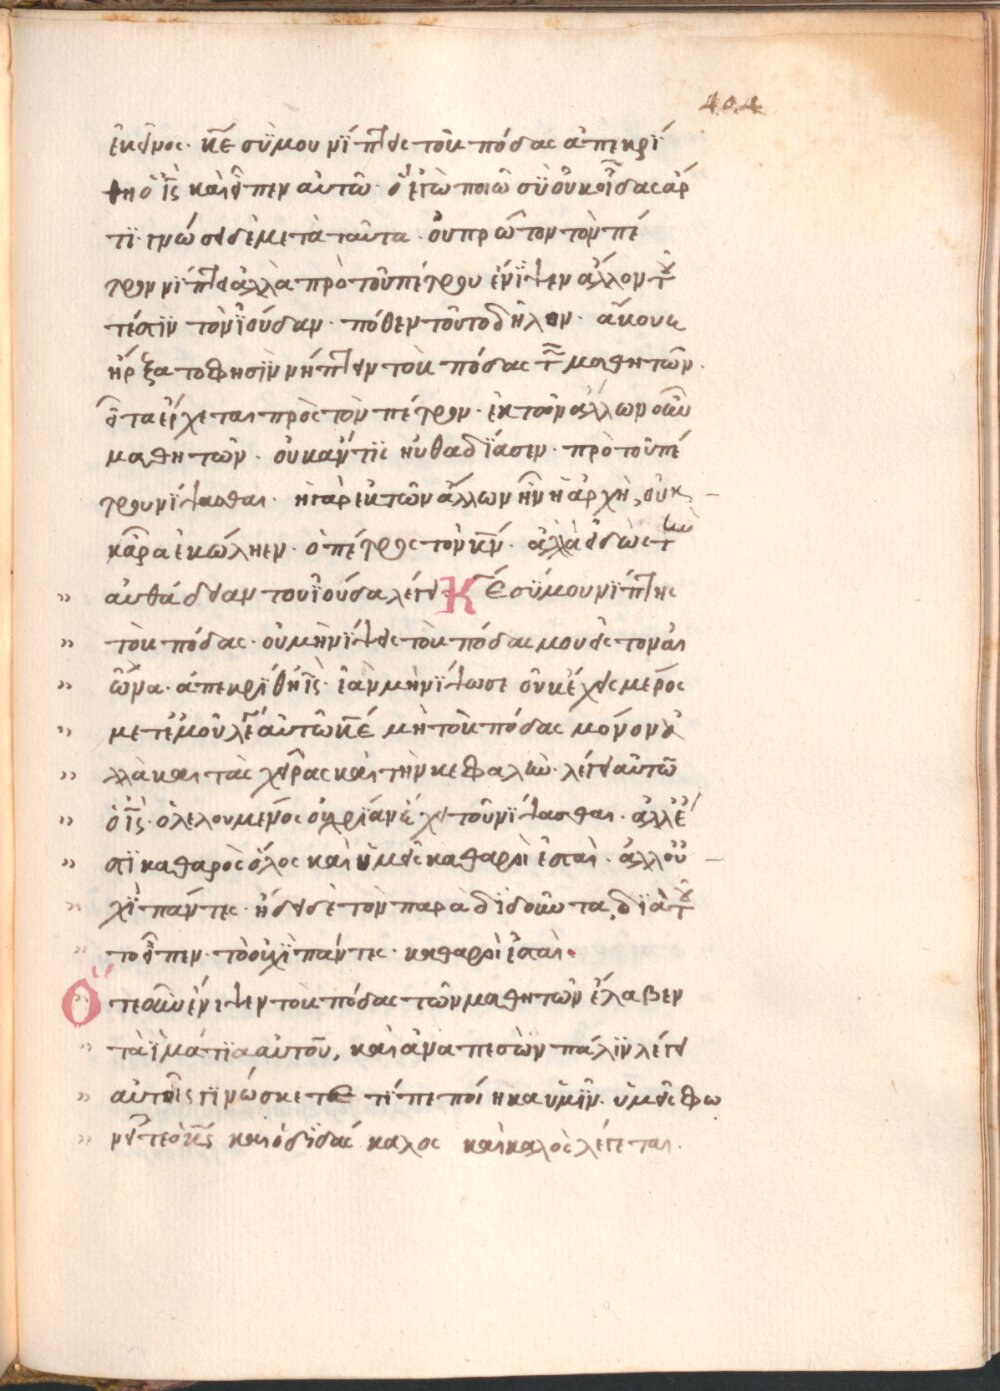 404
ἐκεῖνος· κ̅ε̅ σύ μου νίπτεις τοὺς πόδας ἀπεκρί
θη ὁ ι̅ς̅ καὶ εἶπεν αὐτῶ· ὃ ἐγὼ ποιῶ σὺ οὐκ οἶδας ἄρ
τι· γνώση δὲ μετὰ ταῦτα· οὐ πρῶτον τὸν πέ
τρον νίπτει ἀλλὰ πρὸ τοῦ πέτρου ἔνιψεν ἄλλον τοῦ
τέστιν τὸν ἰούδαν· πόθεν τοῦτο δῆλον· ἄκουε
ἤρξατο φησὶν νήπτειν τοὺς πόδας τῶν μαθητῶν·
εἶτα ἔρχεται πρὸς τὸν πέτρον· ἐκ τῶν ἄλλων οὖν
μαθητῶν· οὐκ ἄν τις ηὐθαδίασεν· πρὸ τοῦ πέ
τρου νίψασθαι· ἡ γὰρ ἐκ τῶν ἄλλων ἦν ἡ ἀρχὴ, οὐκ
κἂρα ἐκώλυεν· ὁ πέτρος τὸν κ̅ν̅· ἀλλὰ εἰδὼς τὴν
αὐθάδειαν τοῦ ἰούδα λέγει Κ̅ε̅ σύ μου νίπτης
τοὺς πόδας· οὐ μὴ νίψεις τοὺς πόδας μου εἰς τὸν αἰ
ῶνα· ἀπεκρίθη ι̅ς̅· ἐὰν μὴ νίψω σε οὐκ ἔχεις μέρος
μετ ἐμοῦ λέγει αὐτῶ κ̅ε̅ μὴ τοὺς πόδας μόνον ἀ
λλὰ καὶ τὰς χεῖρας καὶ τὴν κεφαλὴν· λέγει αὐτῶ
ὁ ι̅ς̅· ὁ λελουμένος οὐ χρίαν ἔχει τοῦ νίψασθαι· ἀλλ ἔ
στι καθαρὸς ὅλος καὶ ὑμεῖς καθαροὶ ἐσταὶ· ἀλλ οὐ
χὶ πάντες· ἤδει δὲ τὸν παραδιδοῦντα, διὰ τοῦ
το εἶπεν· τὸ οὐχὶ πάντες· καθαροὶ ἐσταὶ·
Ὅτε οὖν ἔνιψεν τοὺς πόδας τῶν μαθητῶν ἔλαβεν
τὰ ἱμάτια αὐτοῦ, καὶ ἀναπεσὼν πάλιν λέγει
αὐτοῖς γινώσκετε τί πεποίηκα ὑμῖν· ὑμεῖς φω
νεῖτε ὁ κ̅ς̅ καὶ ὁ διδάς καλος καὶ καλὸς λέγεται·